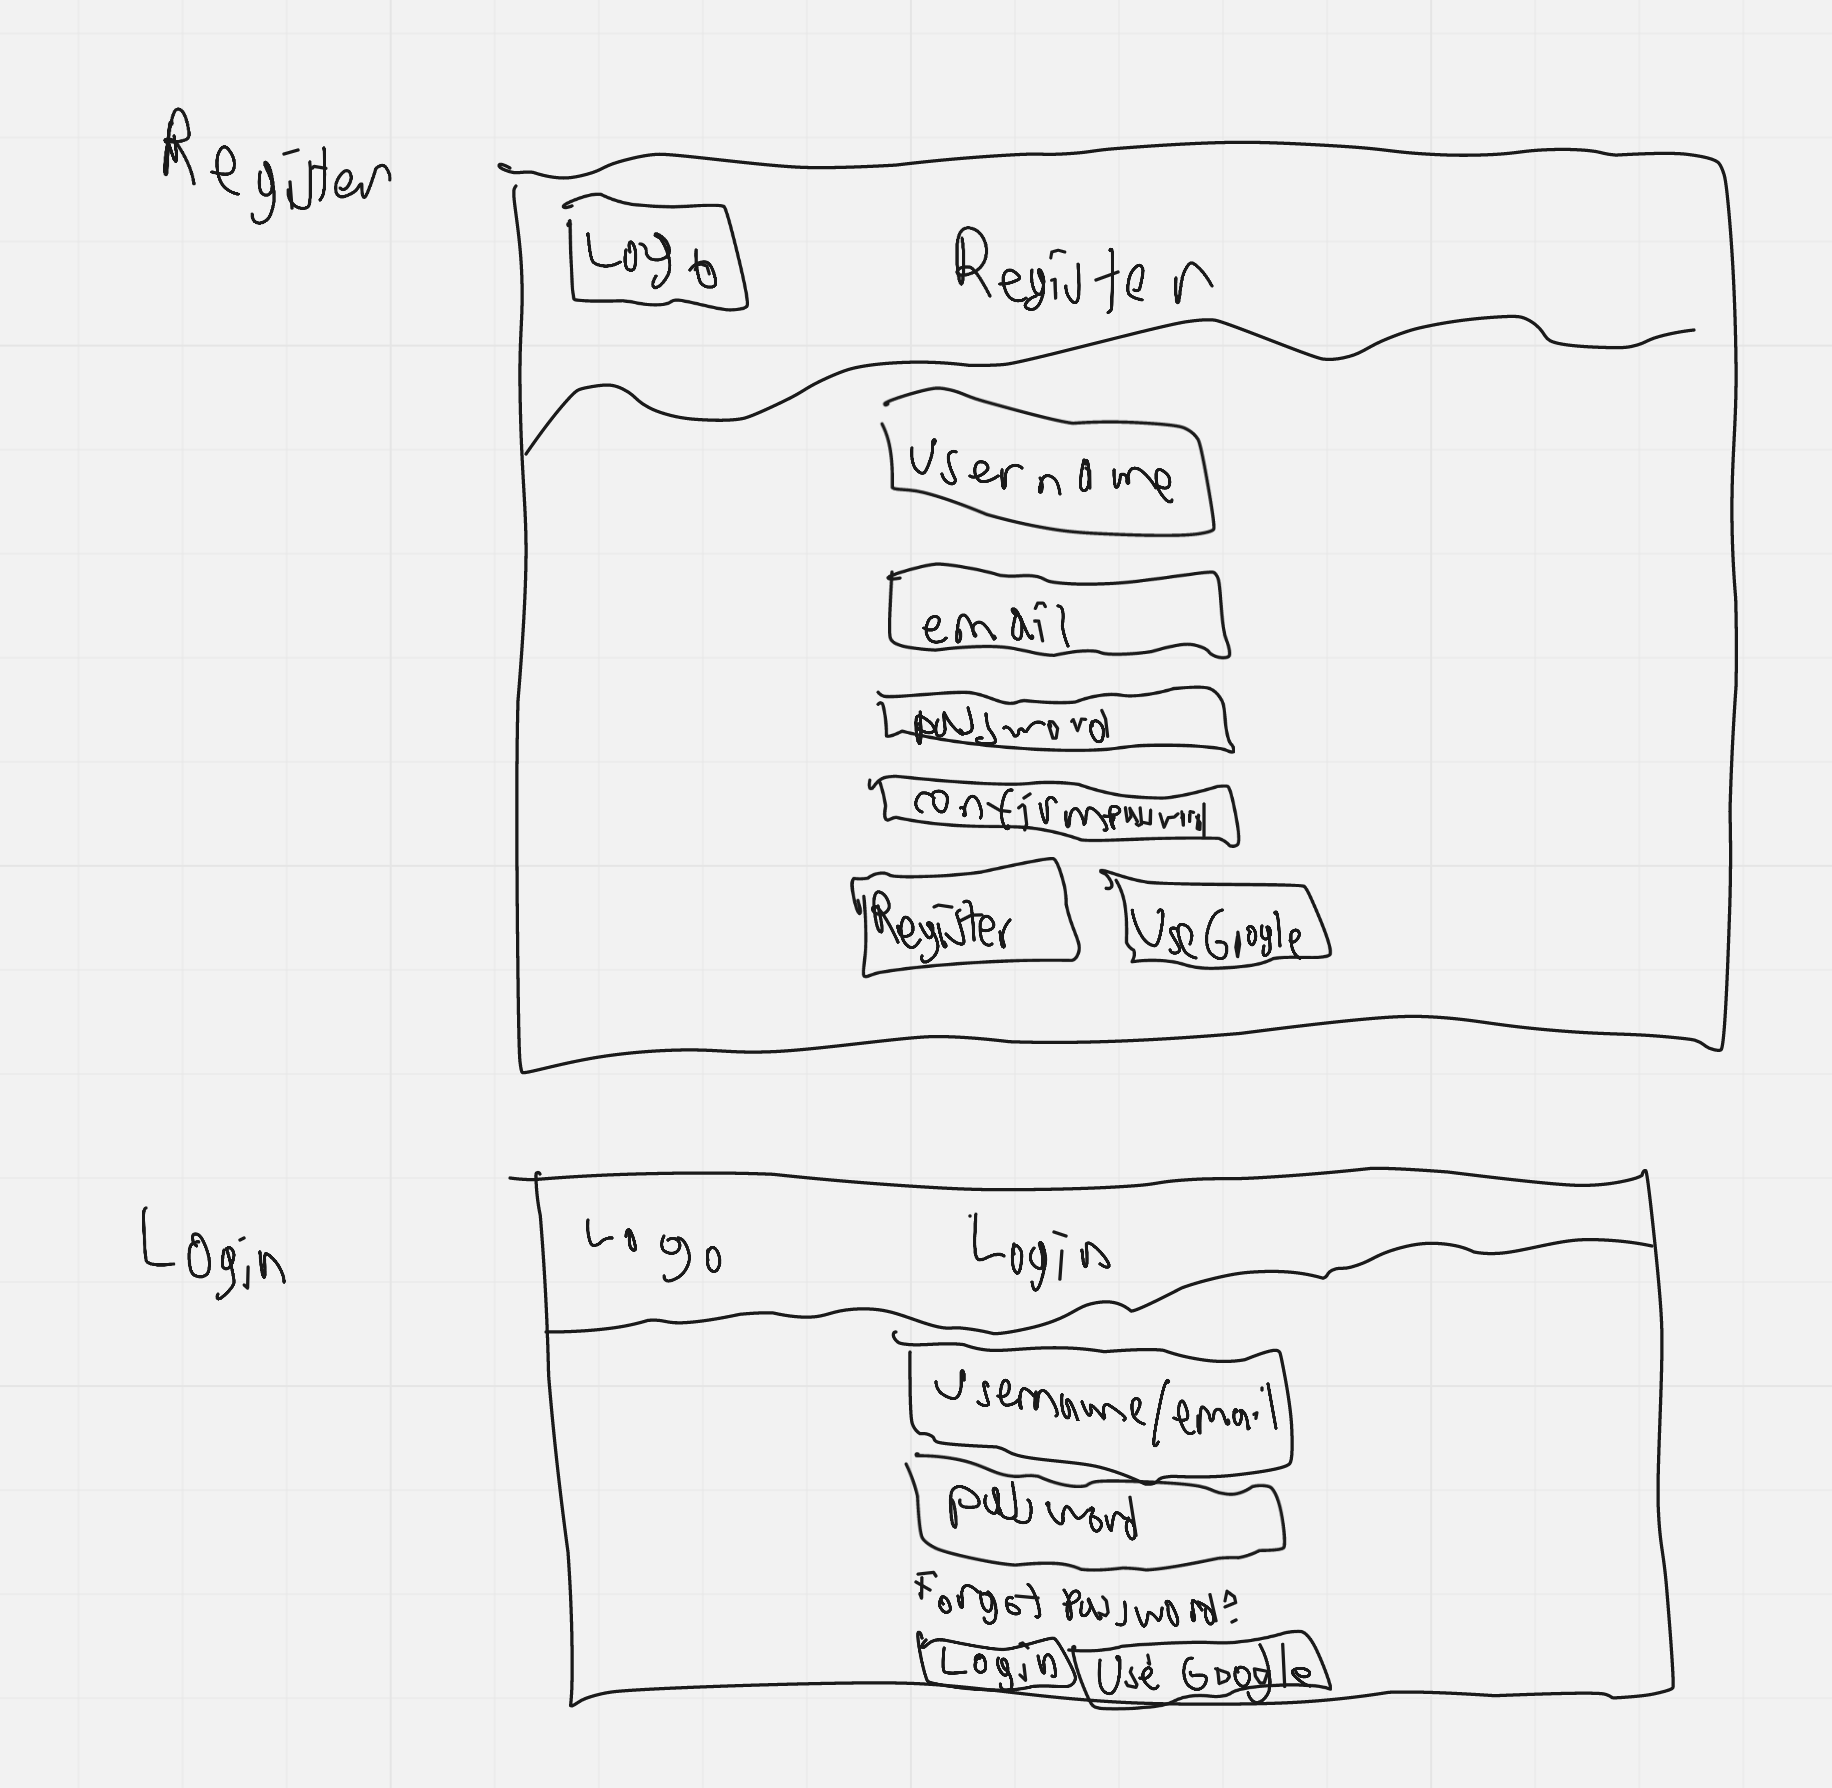 Register
Logo
Register
Username
email
password
confirm password
Register
Use Google
Login
Logo
Login
Username/email
password
Forgot password?
Login
Use Google